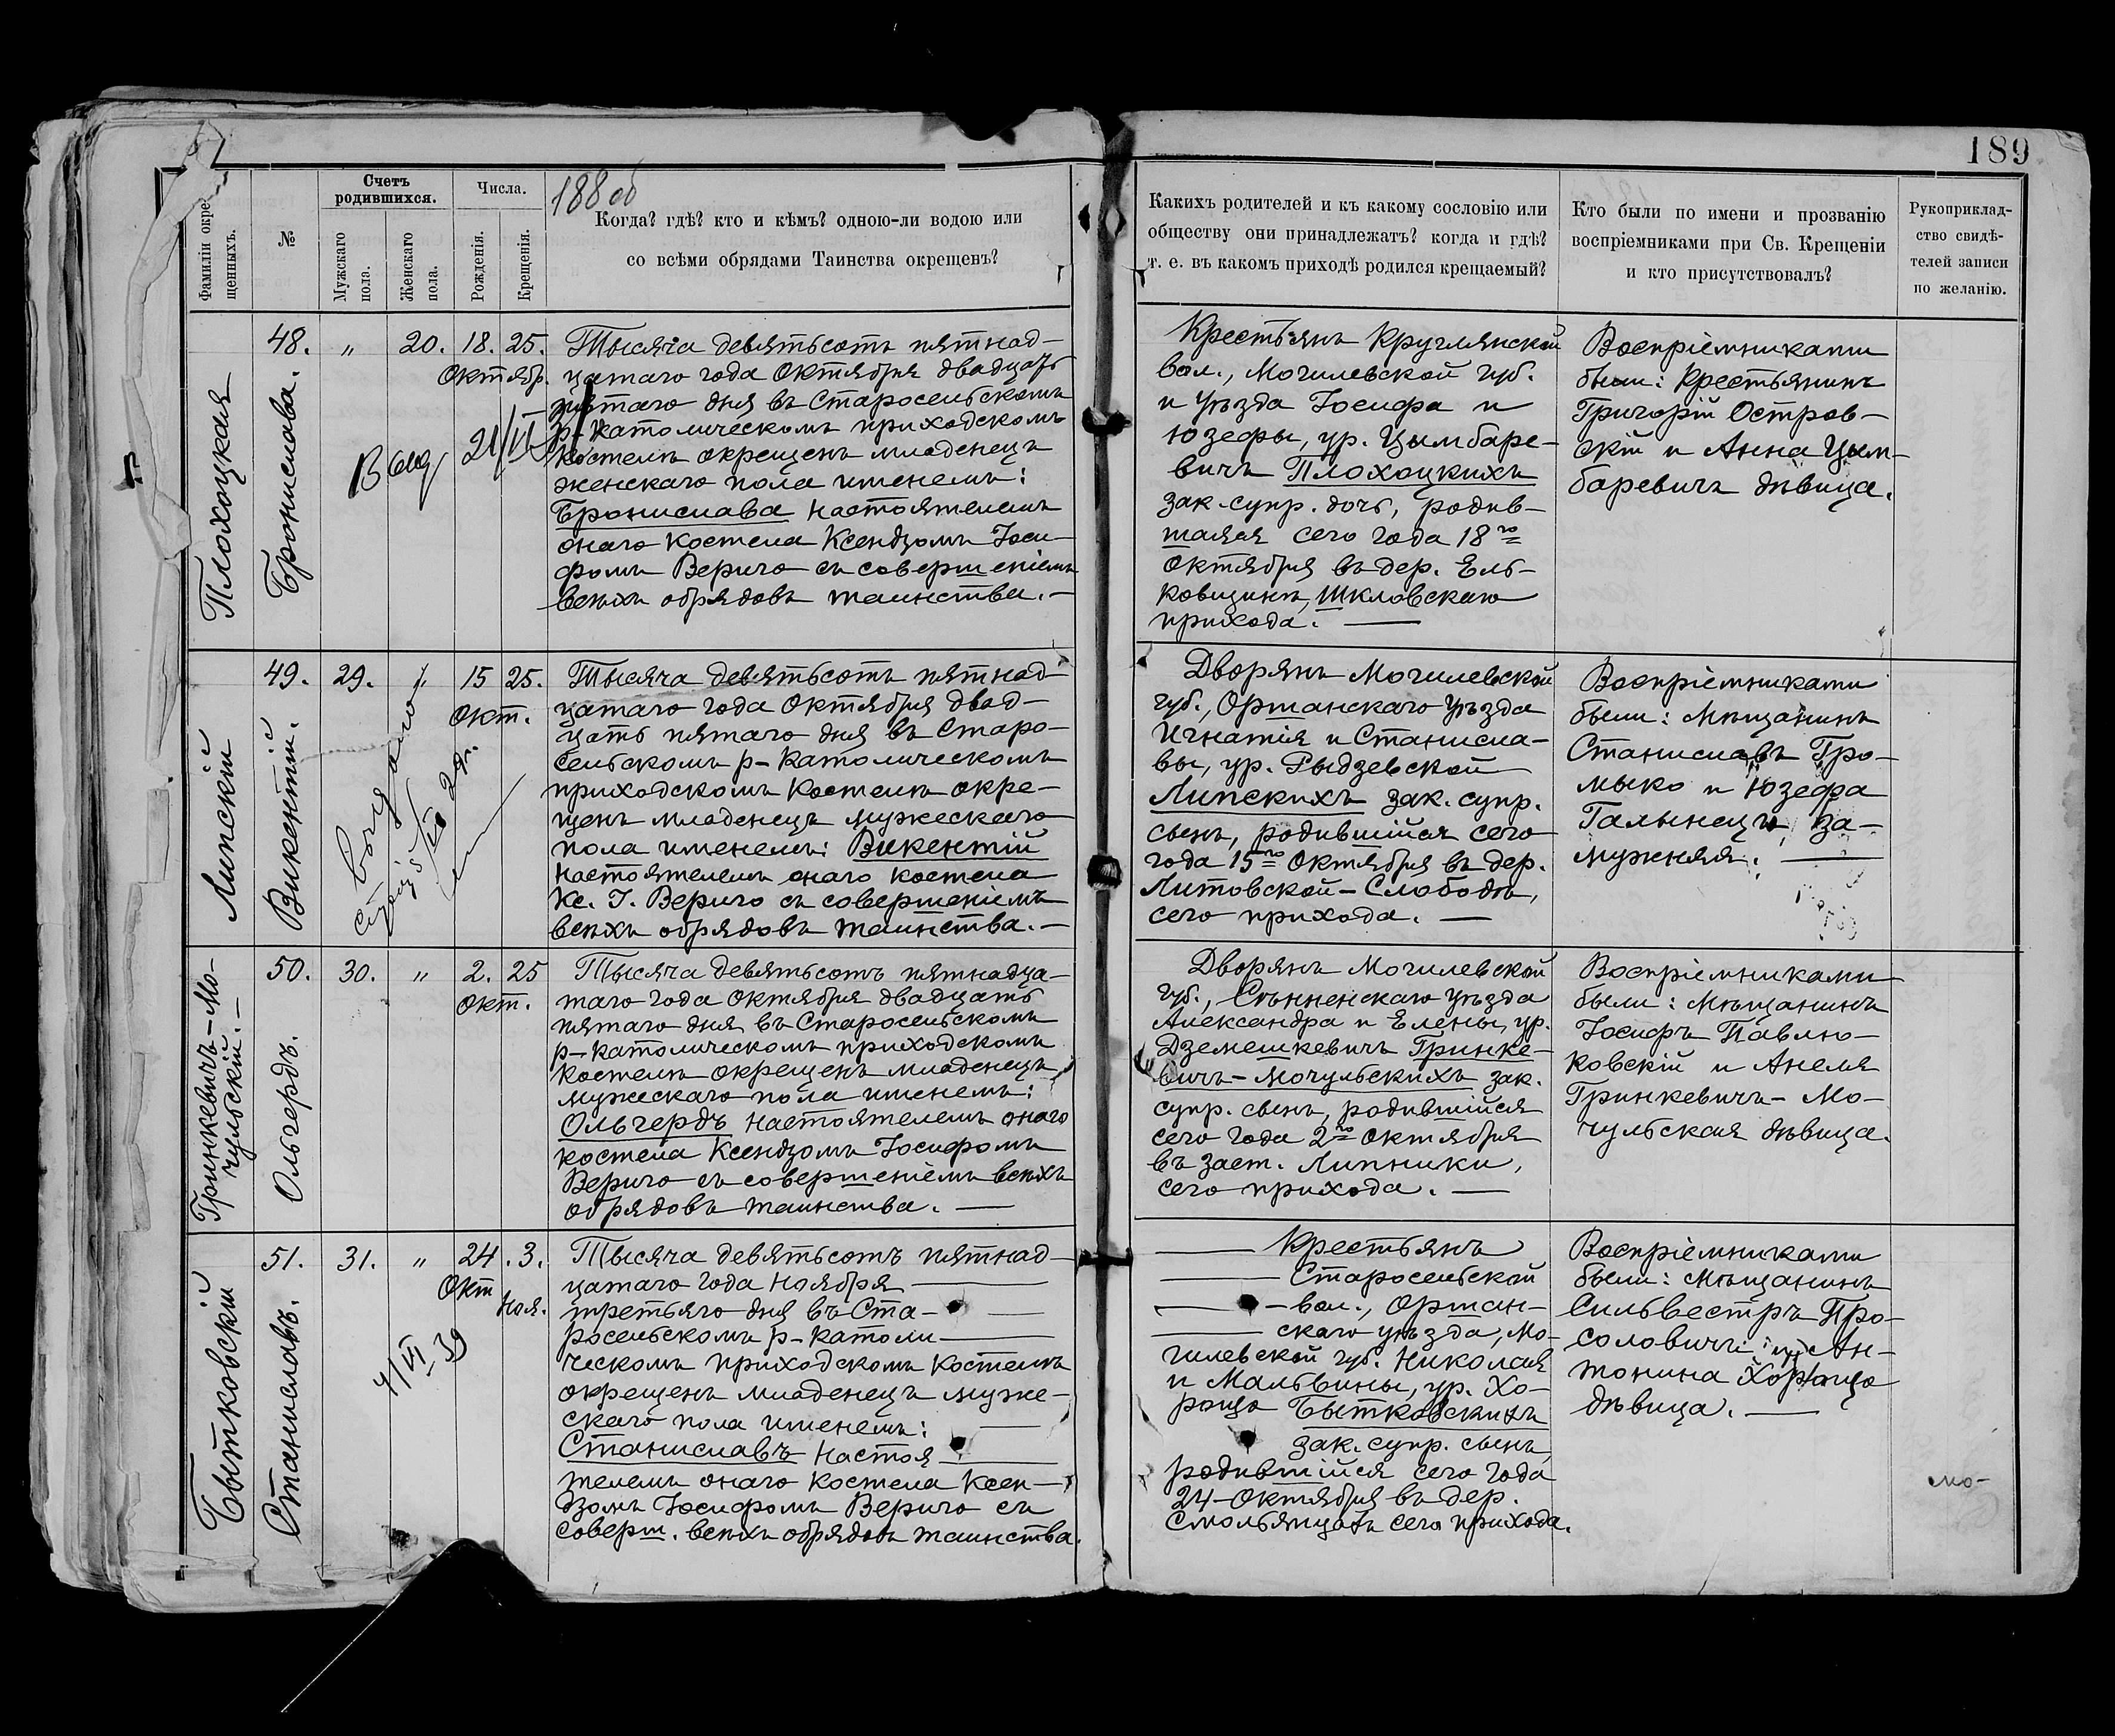 189
188 об
Фамиліи окре-
щенныхъ.
№
Счетъ
родившихся.
Мужскаго
пола.
Женскаго
пола.
Числа.
Рожденія.
Крещенія.
Когда? гдѣ? кто и кѣмъ? одною-ли водою или
со всѣми обрядами Таинства окрещенъ?
Какихъ родителей и къ какому сословію или
обществу они принадлежатъ? когда и гдѣ?
т. е. въ какомъ приходѣ родился крещаемый?
Кто были по имени и прозванію
воспріемниками при Св. Крещеніи
и кто присутствовалъ?
Рукоприклад-
ство свидѣ-
телей записи
по желанію.
Плохоцкая
Бронислава.
48. " 20. 18. 25.
Октябр.
21/VI
Тысяча девятьсотъ пятнад-
цатаго года Октября двадцать
пятаго дня въ Старосельскомъ
р-католическомъ приходскомъ
костелѣ окрещенъ младенецъ
женскаго пола именемъ:
Бронислава Настоятелемъ
онаго костела Ксендзомъ Іоси-
фомъ Верыго съ совершеніемъ
всѣхъ обрядовъ таинства.—
Крестьянъ Круглянской
вол., Могилевской губ.
и уѣзда Іосифа и
Юзефы, ур. Цымбаре-
вичъ Плохоцкихъ
зак. супр. дочь, родив-
шаяся сего года 18го
Октября въ дер. Ель-
ковщинѣ, Шкловскаго
прихода. —
Воспріемниками
были: Крестьянинъ
Григорій Остров-
скій и Анна Цым-
баревичъ дѣвица.
Липскій
Викентій.
49. 29. " 15 25.
Окт.
Тысяча девятьсотъ пятнад-
цатаго года Октября двад-
цать пятаго дня въ Старо-
сельскомъ р-католическомъ
приходскомъ костелѣ окре-
щенъ младенецъ мужескаго
пола именемъ: Викентій
Настоятелемъ онаго костела
Кс. І. Верыго съ совершеніемъ
всѣхъ обрядовъ таинства.—
Дворянъ Могилевской
губ., Оршанскаго уѣзда
Игнатія и Станисла-
вы, ур. Рыдзевской
Липскихъ зак. супр.
сынъ, родившійся сего
года 15го Октября въ дер.
Литовской-Слободѣ,
сего прихода. —
Воспріемниками
были: Мѣщанинъ
Станиславъ Гро-
мыко и Юзефа
Галынецъ, за-
мужняя. —
Гринкевичъ-Мо-
чульскій.—
Ольгердъ.
50. 30. " 2. 25
Окт.
Тысяча девятьсотъ пятнадца-
таго года Октября двадцать
пятаго дня въ Старосельскомъ
р-католическомъ приходскомъ
костелѣ окрещенъ младенецъ
мужескаго пола именемъ:
Ольгердъ Настоятелемъ онаго
костела Ксендзомъ Іосифомъ
Верыго съ совершеніемъ всѣхъ
обрядовъ таинства. —
Дворянъ Могилевской
губ., Сѣнненскаго уѣзда
Александра и Елены, ур.
Дземешкевичъ Гринке-
вичъ-Мочульскихъ зак.
супр. сынъ, родившійся
сего года 2го Октября
въ заст. Липники,
сего прихода. —
Воспріемниками
были: Мѣщанинъ
Іосифъ Павлю-
ковскій и Анеля
Гринкевичъ-Мо-
чульская дѣвица.
Бытковскій
Станиславъ.
51. 31. " 24. 3.
Окт Ноя.
4/VI 39
Тысяча девятьсотъ пятнад-
цатаго года Ноября —
третьяго дня въ Ста- —
росельскомъ р-католи- —
ческомъ приходскомъ костелѣ
окрещенъ младенецъ муже-
скаго пола именемъ: —
Станиславъ Настоя —
телемъ онаго костела Ксен-
дзомъ Іосифомъ Верыго съ
соверш. всѣхъ обрядовъ таинства.
— Крестьянъ
— Старосельской
— вол., Оршан-
— скаго уѣзда, Мо-
гилевской губ. Николая
и Мальвины, ур. Хо-
рощо Бытковскихъ
зак. супр. сынъ,
родившійся сего года
24-Октября въ дер.
Смольянцахъ сего прихода.
Воспріемниками
были: Мѣщанинъ
Сильвестръ Про-
соловичъ и Ан-
тонина Хорощо
дѣвица. —
мо-